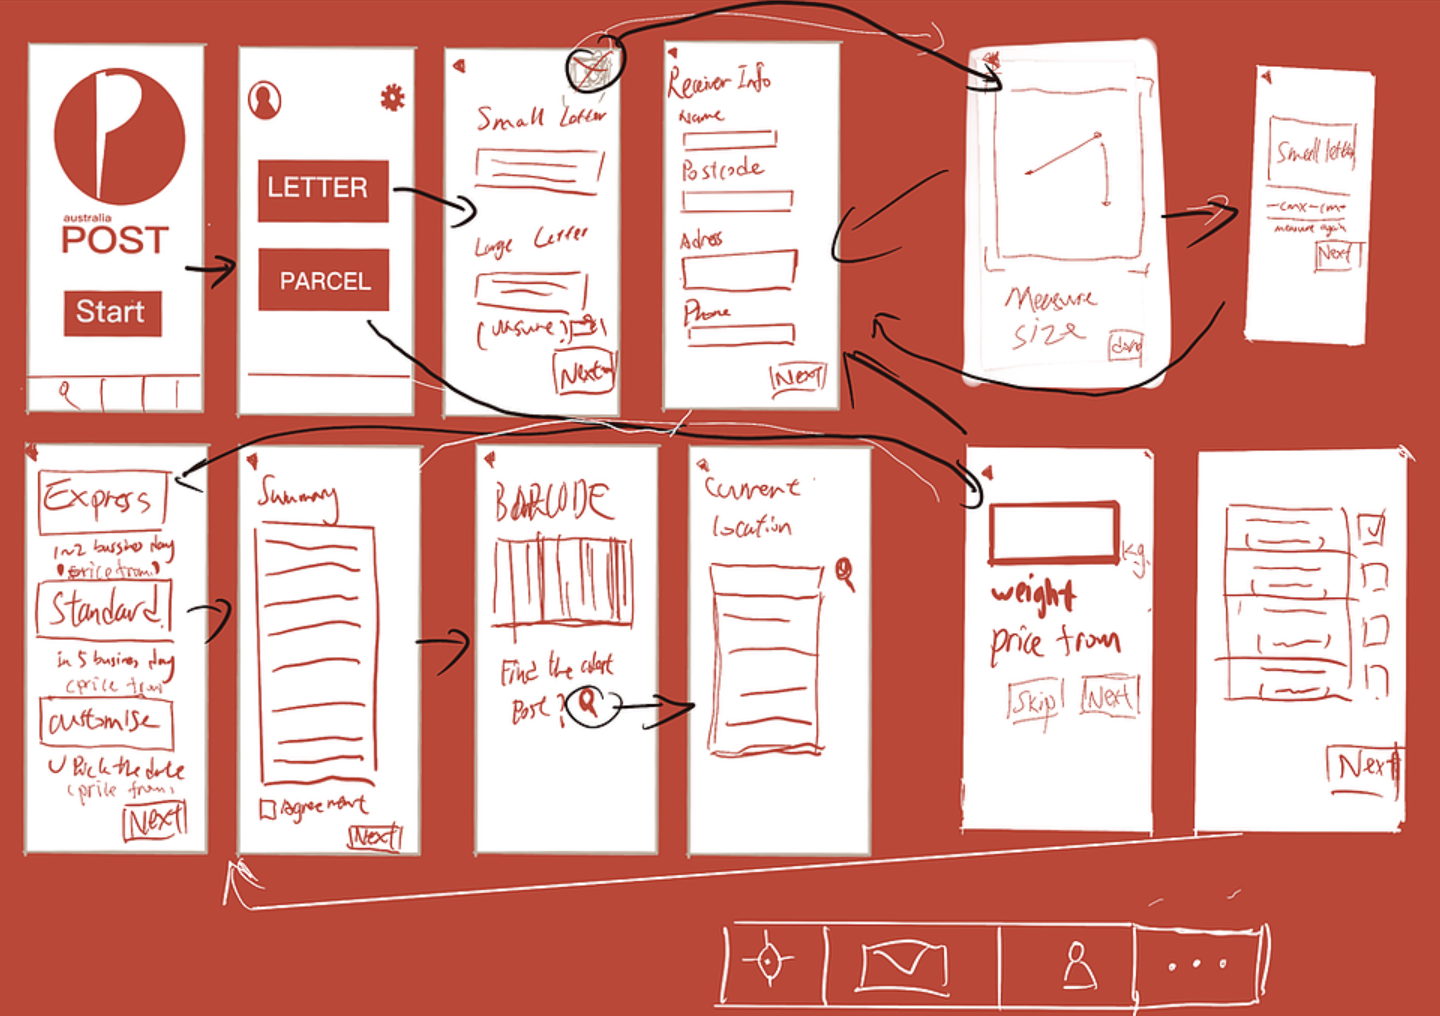 australia
POST
Start
LETTER
PARCEL
Small Letter
Large Letter
Next
Receiver Info
Name
Postcode
Adress
Phone
Next
Measure
size
done
Small letter
measure again
Next
Express
1~2 bussines day
(price from)
Standard
in 5 busines day
(price from
customise
Pick the date
(price from)
Next
Summary
Agreement
Next
BARCODE
Find the
Post?
Current
location
kg.
weight
price from
Skip
Next
Next